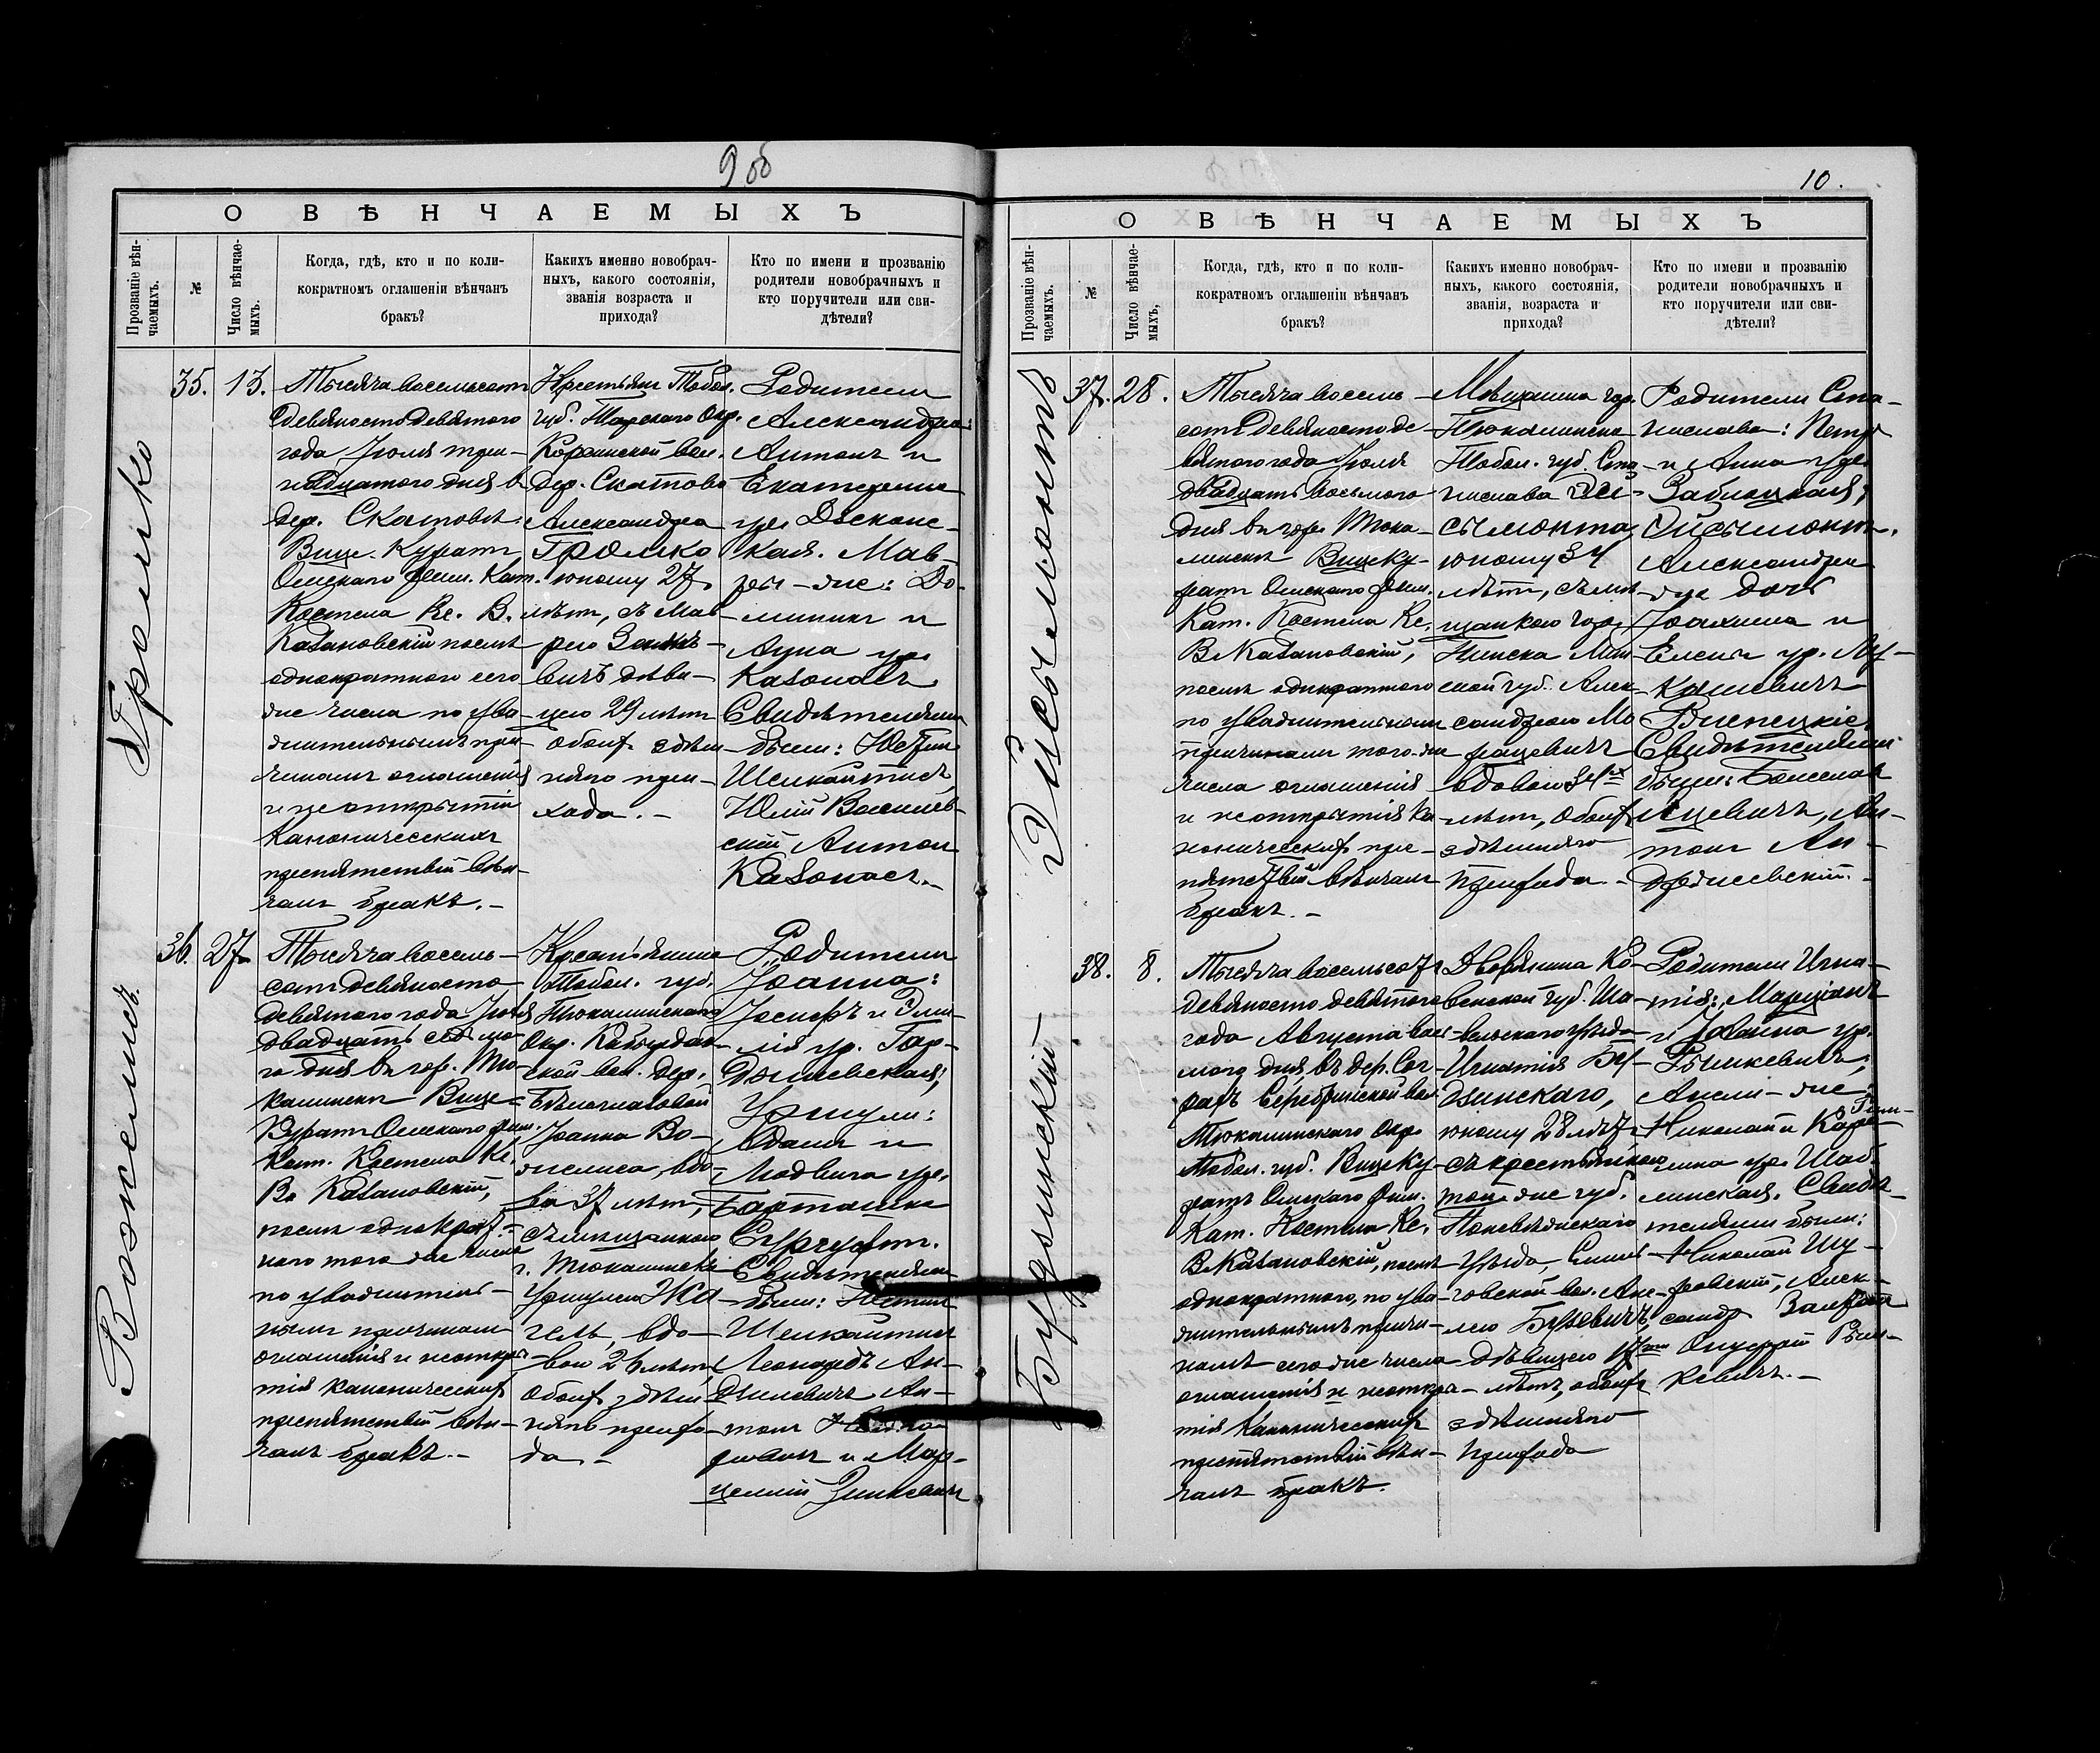 9 об
О ВѢНЧАЕМЫХЪ
Прозваніе вѣн-
чаемыхъ.
№
Число вѣнчае-
мыхъ.
Когда, гдѣ, кто и по коли-
кократномъ оглашеніи вѣнчанъ
бракъ?
Какихъ именно новобрач-
ныхъ, какого состоянія,
званія возраста и
прихода?
Кто по имени и прозванію
родители новобрачныхъ и
кто поручители или сви-
дѣтели?
Громко
35.
13.
Тысяча восемьсотъ
девяносто девятого
года Іюля три-
надцатого дня въ
дер. Скатовѣ
Вице-Куратъ
Омскаго фил. Кат.
Костела Кс. В.
Казановскій послѣ
однократного сего
же числа по ува-
жительнымъ при-
чинамъ оглашенія
и неоткрытіи
каноническихъ
препятствій вѣн-
чалъ бракъ.-
Крестьян. Тобол.
губ. Тарскаго Окр.
вол.
дер. Скатово
Александра
Громко
юношу 27
лѣтъ, съ Мав-
рею
вичъ дѣви-
цею 29 лѣтъ
обоих здѣш-
няго при-
хода.-
Родители
Александра:
Антонъ и
Екатерина
ур.
кая. Мав-
ры-же: До-
миникъ и
Анна ур.
Казонасъ
Свидѣтелями
были: Юстин
Шелкайтисъ,
Юлій
скій Антон
Казонасъ.-
Вожелисъ.
36.
27
Тысяча восемь-
сотъ девяносто
девятого года Іюля
двадцать седьмо-
го дня въ гор. Тю-
калинскѣ Вице-
Куратъ Омскаго фил.
Кат. Костела Кс.
В. Казановскій,
послѣ однократ-
ного того же числа
по уважитель-
нымъ причинам
оглашенія и неоткры-
тія каноническихъ
препятствій вѣн-
чалъ бракъ.-
Крестьянина
Тобол. губ.
Тюкалинскаго
Окр.
ской вол. дер.
Іоанна Во-
желиса, вдо-
ва 37 лѣтъ,
съ мѣщанкою
г. Тюкалинска
Уршулею
вдо-
вою 26 лѣтъ,
обоих здѣш-
няго прихо-
да.-
Родители
Іоанна:
Іосифъ и Эми-
лія ур.
Уршули:
Адамъ и
Людвига ур.
Свидѣтелями
были: Юстин
Шелкайтисъ
Леонардъ Ан-
Ан-
тон
и Мар-
целій Зинкевичъ
10.
О ВѢНЧАЕМЫХЪ
Прозваніе вѣн-
чаемыхъ.
№
Число вѣнчае-
мыхъ,
Когда, гдѣ, кто и по коли-
кократномъ оглашеніи вѣнчанъ
бракъ?
Какихъ именно новобрач-
ныхъ, какого состоянія,
званія, возраста и
прихода?
Кто по имени и прозванію
родители новобрачныхъ и
кто поручители или сви-
дѣтели?
Эйсымонтъ
37.
28.
Тысяча восемь-
сотъ девяносто де-
вятого года Іюля
двадцать восьмого
дня въ гор. Тюка-
линскѣ Вицеку-
ратъ Омскаго фил.
Кат. Костела Кс.
В. Казановскій,
послѣ однократного
по уважительным
причинам того-же
числа оглашенія
и неоткрытія ка-
ноническихъ пре-
пятствій вѣнчалъ
бракъ.-
Мѣщанина гор.
Тюкалинска
Тобол. губ. Ста-
нислава Эй-
сымонта,
юношу 34
лѣтъ, съ мѣ-
щанкою гор.
Пинска Мин-
ской губ. Алек-
сандрою
вдовою 34х
лѣтъ, обоих
здѣшняго
прихода.-
Родители Ста-
нислава: Петр
и Анна ур.
Заблоцкая,
Эйсымонт.
Александры
же дочь
Іоахима и
Елены ур. Лу-
кашевичъ
Свидѣтелями
были: Болеслав
Яцевичъ, Ан-
тон Ан-
држеевскій.-
Будзинскій
38.
8.
Тысяча восемьсотъ
девяносто девятого
года Августа вось-
мого дня, въ дер.
вол.
Тюкалинскаго Окр.
Тобол. губ. Вицеку-
ратъ Омскаго фил.
Кат. Костела Кс.
В. Казановскій, послѣ
однократного, по ува-
жительнымъ причи-
намъ сего же числа
оглашенія и неоткры-
тія каноническихъ
препятствій вѣн-
чалъ бракъ.
Дворянина Ко-
венской губ. Ша-
вельскаго уѣзда
Игнатія Бу-
дзинскаго,
юношу 28 лѣтъ
съ крестьянкою
той же губ.
Поневѣжскаго
уѣзда,
вол. Ане-
лею
дѣвицею 17ти
лѣтъ, обоих
здѣшняго
прихода
Родители Игна-
тія: Марціанъ
и Іоанна ур.
Рымкевичъ,
Анели-же:
Николай и
ур.
Свидѣ-
телями были:
Николай Шу-
Алек-
сандр
Онуфрій Рым-
кевичъ.-